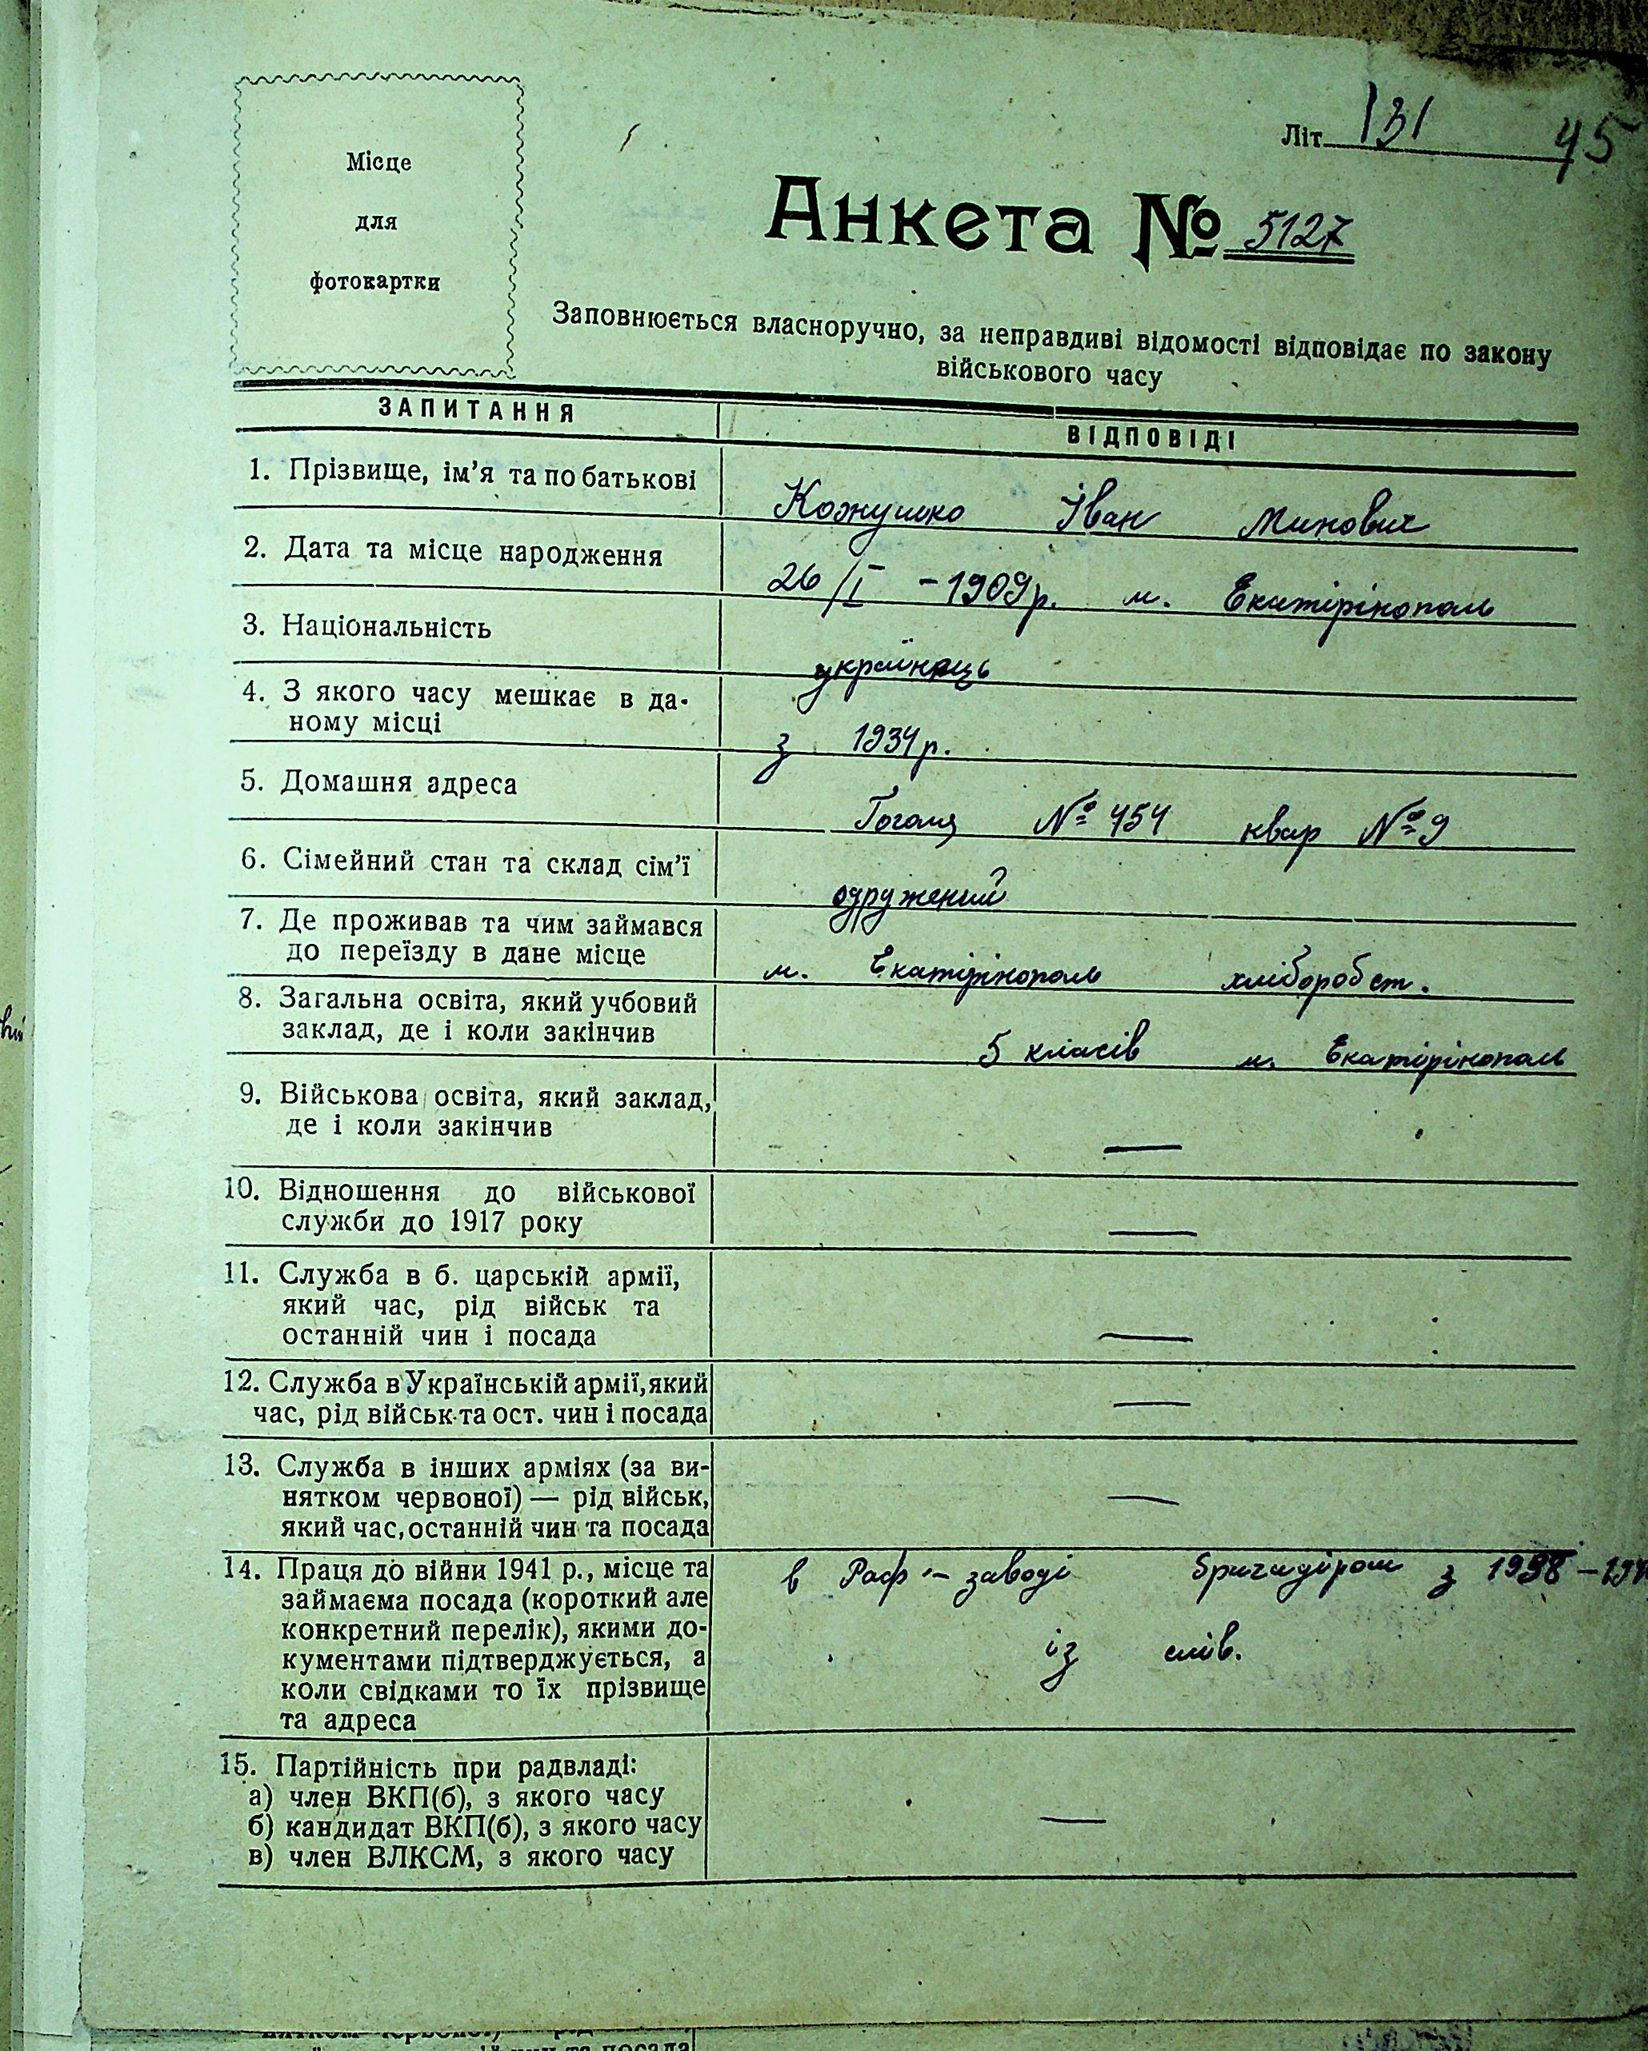 Місце
для
фотокартки
Літ. 131 45
Анкета № 5127
Заповнюється власноручно, за неправдиві відомості відповідає по закону
військового часу
ЗАПИТАННЯ
ВІДПОВІДІ
1. Прізвище, ім'я та по батькові
Кожушко Іван Минович
2. Дата та місце народження
26/I – 1909 р. м. Екатірінополь
3. Національність
українець
4. З якого часу мешкає в да-
ному місці
з 1934 р.
5. Домашня адреса
Гоголя № 454 квар № 9
6. Сімейний стан та склад сім'ї
одружений
7. Де проживав та чим займався
до переїзду в дане місце
м. Екатірінополь хліборобст.
8. Загальна освіта, який учбовий
заклад, де і коли закінчив
5 класів м. Екатірінополь
9. Військова освіта, який заклад,
де і коли закінчив
—
10. Відношення до військової
служби до 1917 року
—
11. Служба в б. царській армії,
який час, рід військ та
останній чин і посада
—
12. Служба в Українській армії, який
час, рід військ та ост. чин і посада
—
13. Служба в інших арміях (за ви-
нятком червоної) — рід військ,
який час, останній чин та посада
—
14. Праця до війни 1941 р., місце та
займаєма посада (короткий але
конкретний перелік), якими до-
кументами підтверджується, а
коли свідками то їх прізвище
та адреса
в Раф – заводі бригадіром з 1938 –
із слів.
15. Партійність при радвладі:
а) член ВКП(б), з якого часу
б) кандидат ВКП(б), з якого часу
в) член ВЛКСМ, з якого часу
—